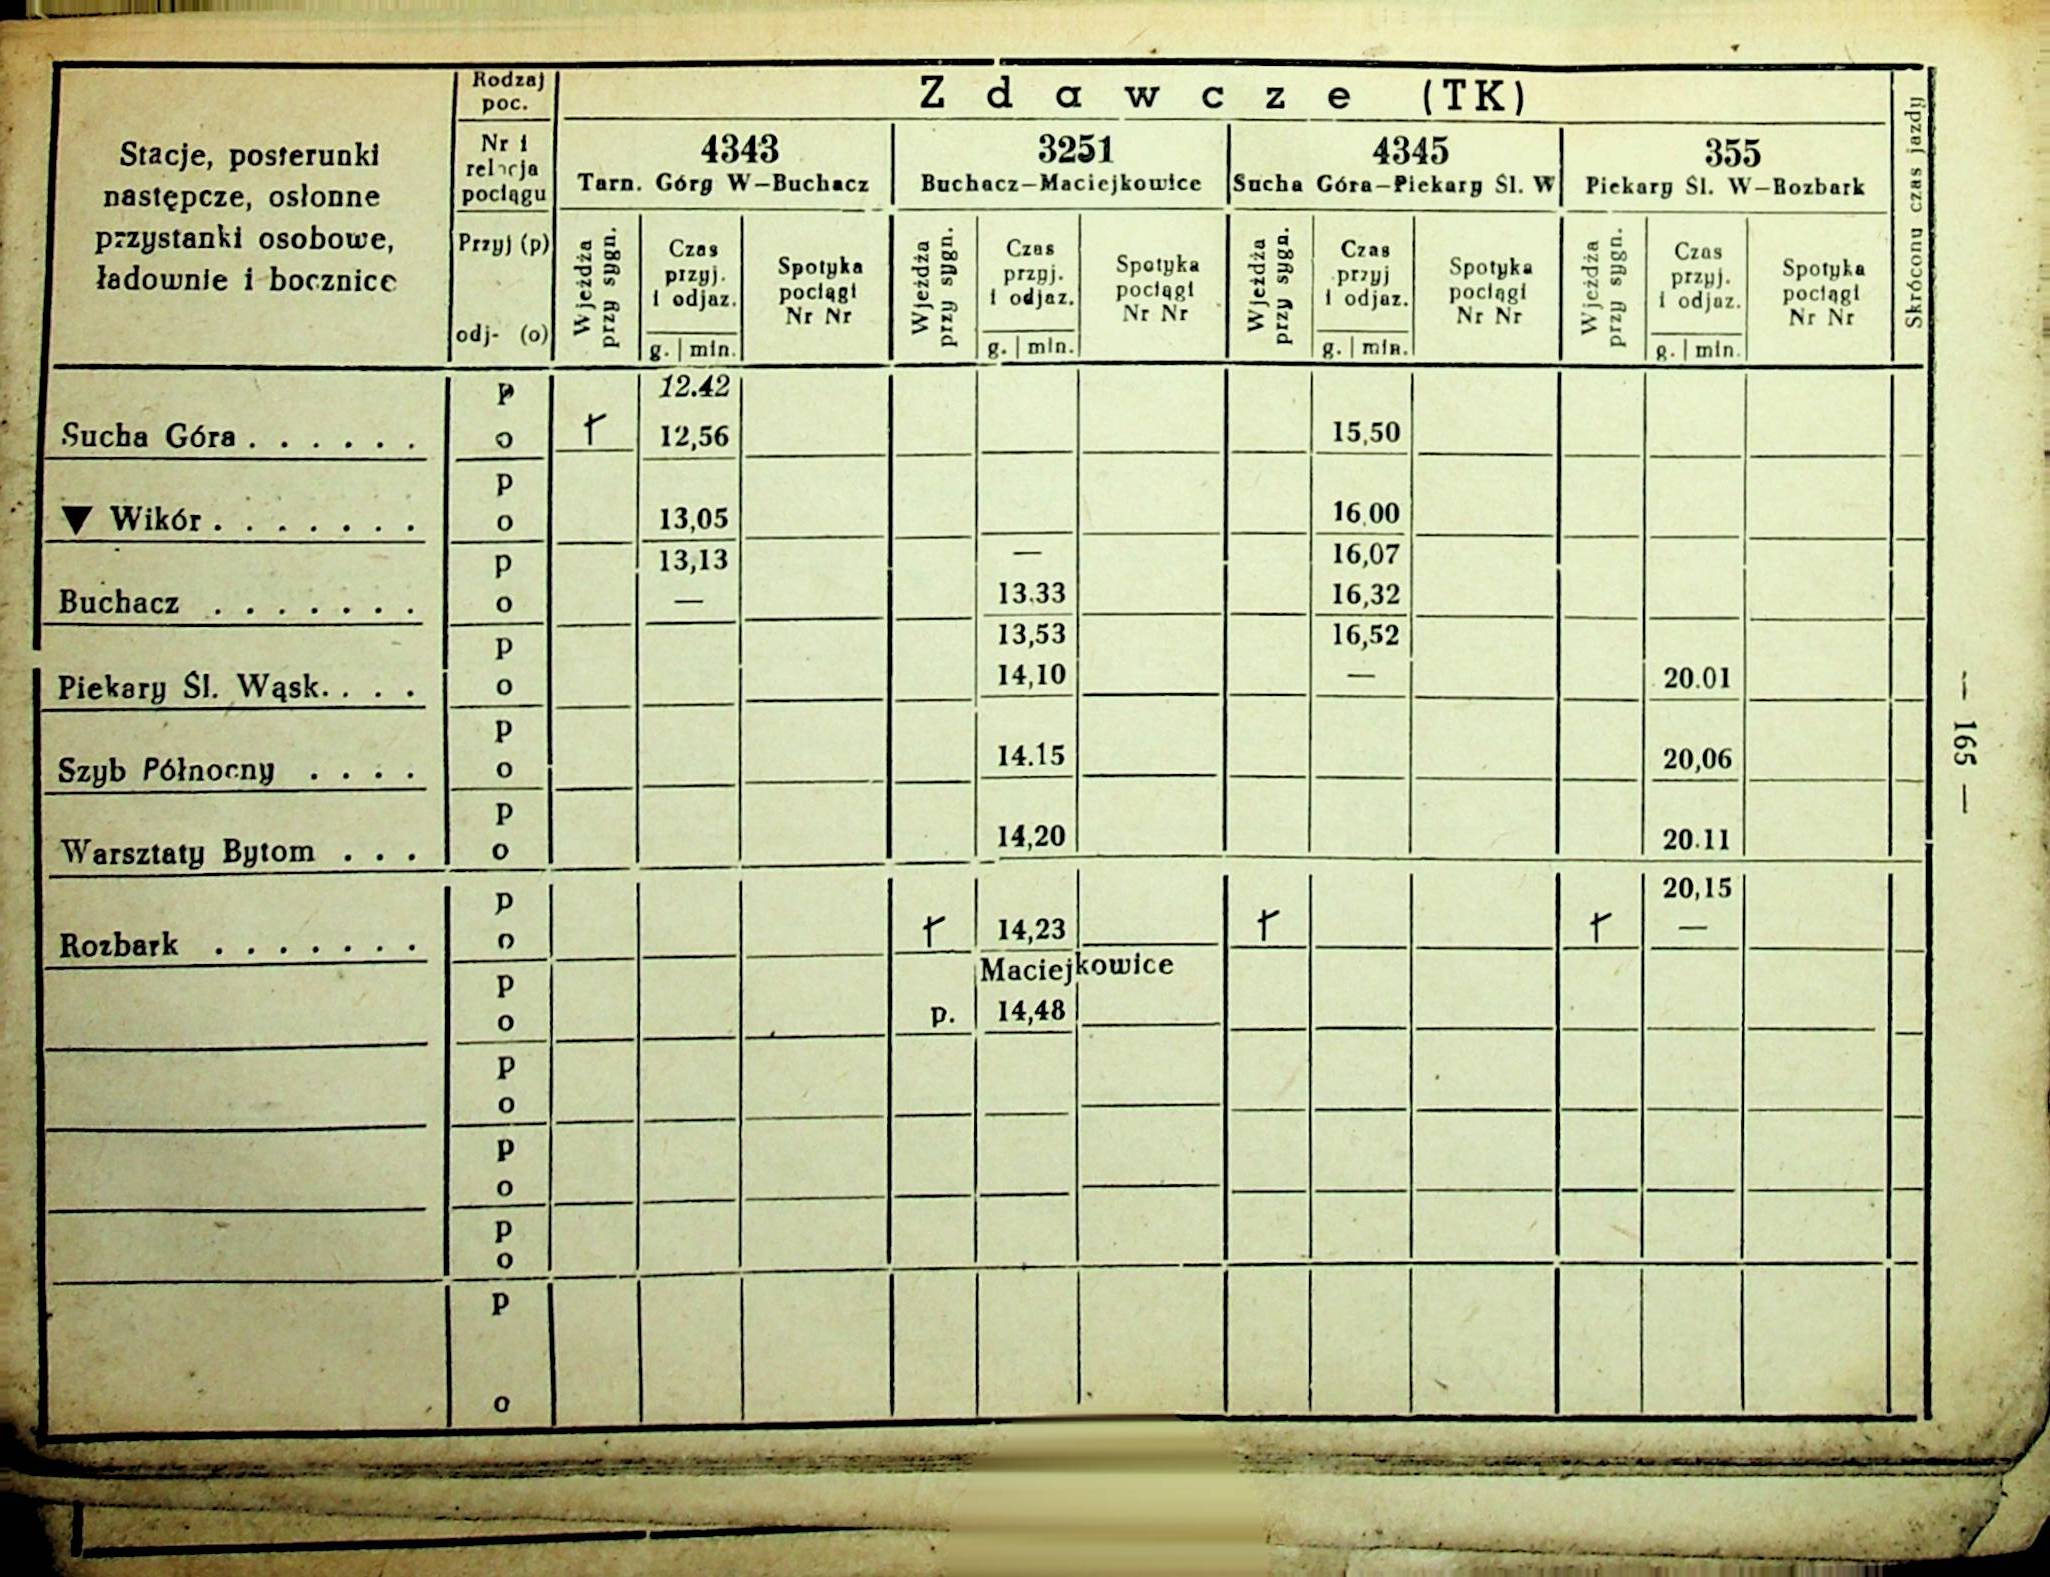 Stacje, posterunki
następcze, osłonne
przystanki osobowe,
ładownie i bocznice
Rodzaj
poc.
Nr i
relacja
pociągu
Przyj (p)
odj- (o)
Zdawcze (TK)
4343
Tarn. Góry W—Buchacz
3251
Buchacz—Maciejkowice
4345
Sucha Góra—Piekary Śl. W
355
Piekary Śl. W—Rozbark
Skrócony czas jazdy
Wjeżdża
przy sygn.
Czas
przyj.
i odjaz.
g. | min.
Spotyka
pociągi
Nr Nr
Wjeżdża
przy sygn.
Czas
przyj.
i odjaz.
g. | min.
Spotyka
pociągi
Nr Nr
Wjeżdża
przy sygn.
Czas
przyj
i odjaz.
g. | min.
Spotyka
pociągi
Nr Nr
Wjeżdża
przy sygn.
Czas
przyj.
i odjaz.
g. | min.
Spotyka
pociągi
Nr Nr
p 12.42
Sucha Góra . . . . . . o † 12,56 15,50
p
▼ Wikór . . . . . . . o 13,05 16.00
p 13,13 — 16,07
Buchacz . . . . . . . o — 13.33 16,32
p 13,53 16,52
Piekary Śl. Wąsk. . . . o 14,10 — 20.01
p
Szyb Północny . . . . o 14.15 20,06
p
Warsztaty Bytom . . . o 14,20 20.11
p 20,15
Rozbark . . . . . . . o † 14,23 † † —
p Maciejkowice
o p. 14,48
p
o
p
o
p
o
p
o
— 165 —